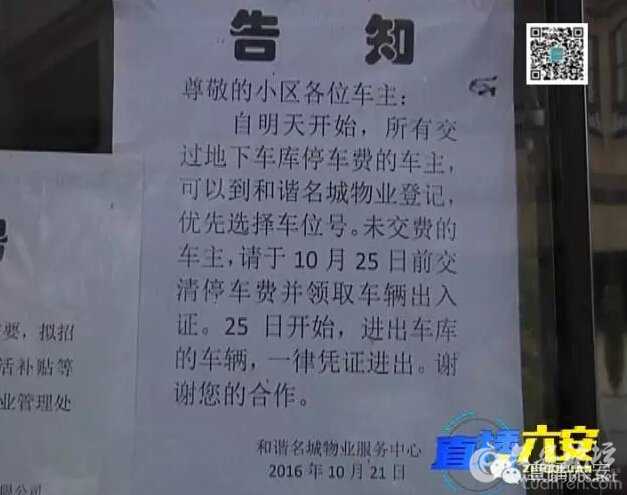 告知
尊敬的小区各位车主：
自明天开始，所有交
过地下车库停车费的车主，
可以到和谐名城物业登记，
优先选择车位号。未交费的
车主，请于 10 月 25 日前交
清停车费并领取车辆出入
证。25 日开始，进出车库
的车辆，一律凭证进出。谢
谢您的合作。
和谐名城物业服务中心
2016 年 10 月 21 日
要，拟招
活补贴等
业管理处
限公司
直播六安